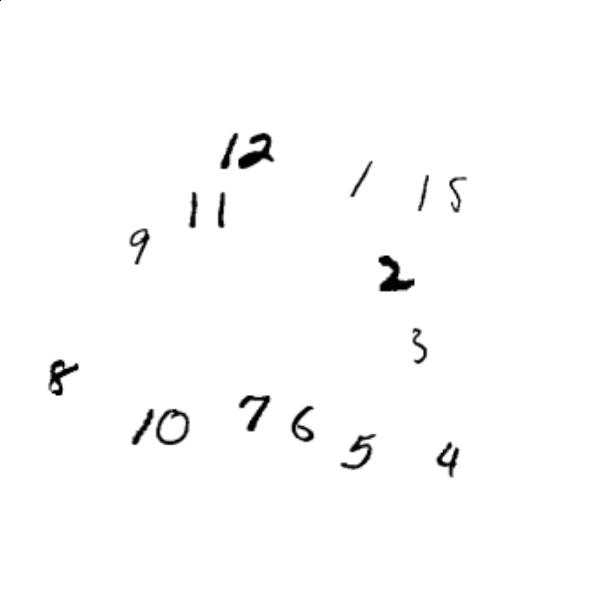 12
1
15
11
9
2
3
8
10
7
6
5
4